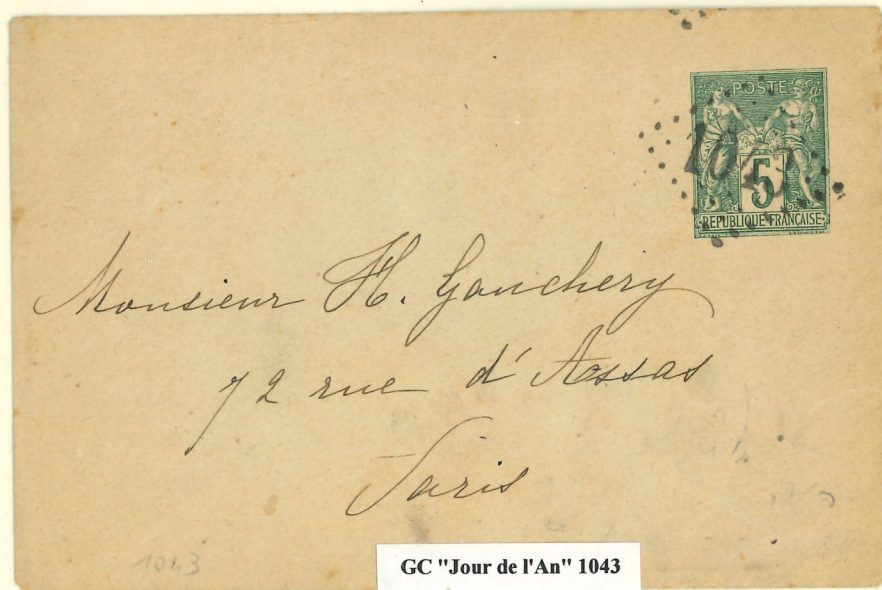 POSTE
1043
5
REPUBLIQUE FRANÇAISE
Monsieur H. Gauchery
72 rue d'Assas
Paris
1043
GC "Jour de l'An" 1043